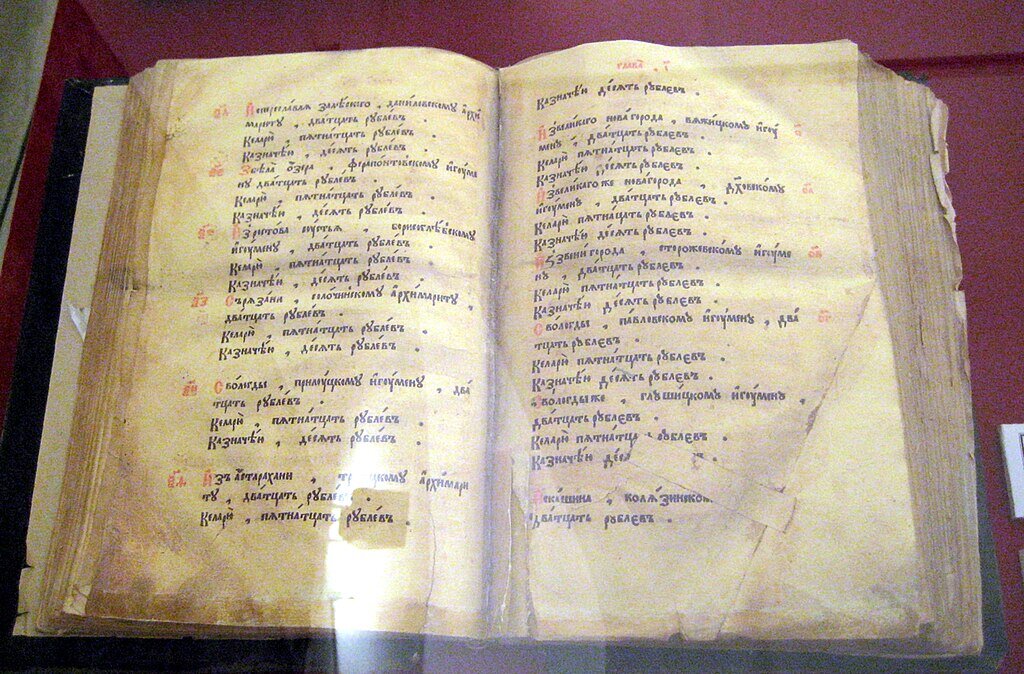 Ипереславля залѣскаго , даниловскому а҆рхи
мариту , два́тцать рублѣвъ .
Келарю̀ , пятна́тцать рублѣвъ .
Казначѣю , де́сять рублѣвъ .
Збѣла о҆́зера , ферапонтовскому и҆гуме
ну два́тцать рублѣвъ .
Келарю̀ , пятна́тцать рублѣвъ .
Казначѣю , де́сять рублѣвъ .
И҆зростова с̾у́стья , борисоглѣбскому
и҆гу́мену , два́тцать рублѣвъ .
Келарю̀ , пятна́тцать рублѣвъ .
Казначѣю , де́сять рублѣвъ .
Сърязани , солочинскому а҆рхимариту ,
два́тцать рублѣвъ .
Келарю̀ , пятна́тцать рублѣвъ .
Казначѣю , де́сять рублѣвъ .
Свологды , прилуцкому и҆гу́мену , два́
тцать рублѣвъ .
Келарю̀ , пятна́тцать рублѣвъ .
Казначѣю , де́сять рублѣвъ .
И҆зъ а҆старахани , а҆рхимари
ту , два́тцать рублѣвъ .
Келарю̀ , пятна́тцать рублѣвъ .
глава̀
Казначѣю де́сять рублєвъ .
И҆звеликаго нова города , вяжицкому и҆гу́
мену , два́тцать рублєвъ .
Келарю̀ пятна́тцать рублєвъ .
Казначѣю де́сять рублєвъ .
И҆звеликаго же новагорода , дх҃овскому
и҆гу́мену , два́тцать рублєвъ .
Келарю̀ пятна́цать рублєвъ .
Казначѣю де́сять рублєвъ .
И҆ꙁзвени города , сторожевскому и҆гу́ме
ну , два́тцать рублєвъ .
Келарю̀ пятна́тцать рублєвъ .
Казначѣю де́сять рублєвъ .
Свологды , павловскому и҆гу́мену , два́
тцать рублєвъ .
Келарю̀ пятна́тцать рублєвъ .
Казначѣю де́сять рублєвъ .
Свологды же , глушицкому и҆гу́мену ,
два́тцать рублєвъ .
Келарю̀ пятна́тца рублєвъ .
Казначѣю
Скашина , колязинском
два́тцать рублєвъ .